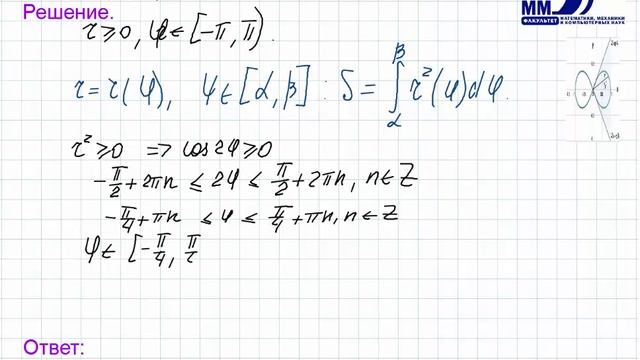 Решение.
ММ
ФАКУЛЬТЕТ МАТЕМАТИКИ, МЕХАНИКИ И КОМПЬЮТЕРНЫХ НАУК
r ≥ 0, φ ∈ [-π, π).
r = r(φ), φ ∈ [α, β] : S = ∫_α^β r²(φ)dφ.
r² ≥ 0 ⇒ cos 2φ ≥ 0
-π/2 + 2πn ≤ 2φ ≤ π/2 + 2πn, n ∈ Z
-π/4 + πn ≤ φ ≤ π/4 + πn, n ∈ Z
φ ∈ [-π/4, π/
Ответ: